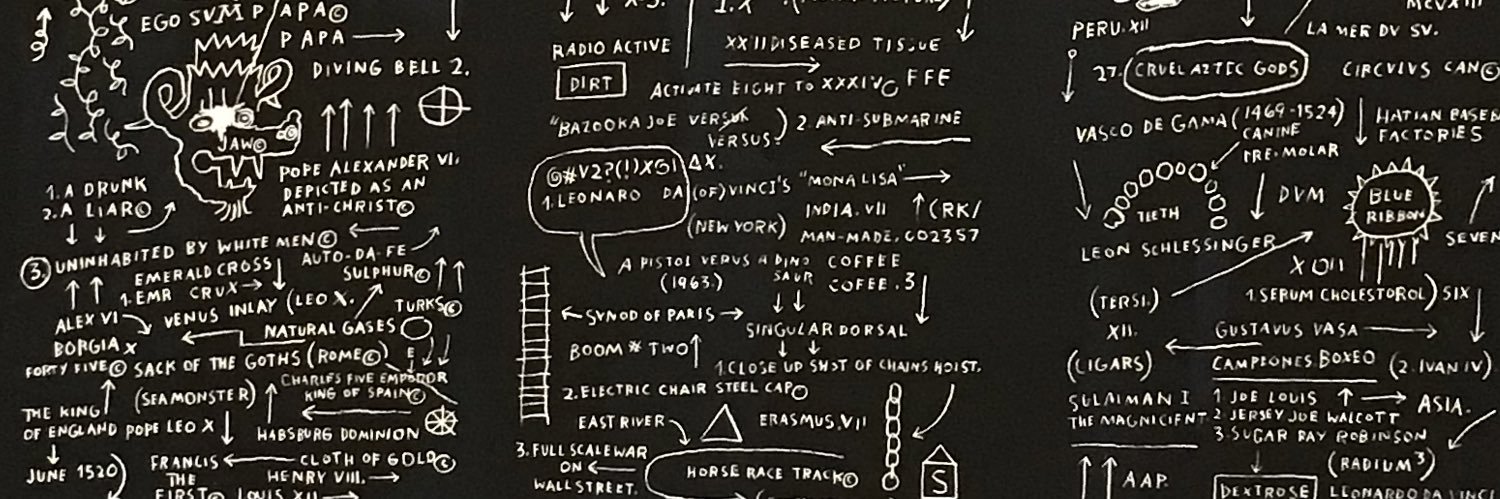 EGO SVM PAPA©
PAPA
DIVING BELL 2.
JAW©
POPE ALEXANDER VI.
DEPICTED AS AN
ANTI-CHRIST©
1. A DRUNK
2. A LIAR©
3. UNINHABITED BY WHITE MEN©
AUTO-DA-FE
EMERALD CROSS
SULPHUR©
1. EMR CRUX
VENUS INLAY (LEO X.
TURKS©
ALEX VI
NATURAL GASES
BORGIA X
FORTY FIVE© SACK OF THE GOTHS (ROME©)
CHARLES FIVE EMPEROR
KING OF SPAIN©
(SEA MONSTER)
THE KING
OF ENGLAND POPE LEO X
HABSBURG DOMINION
JUNE 1520)
FRANCIS
THE
FIRST©
CLOTH OF GOLD©
HENRY VIII.
LOUIS XII
RADIO ACTIVE
DIRT
XXIIDISEASED TISSUE
ACTIVATE EIGHT TO XXXIVG FFE
"BAZOOKA JOE VERSUS
VERSUS.)
2. ANTI-SUBMARINE
@#V2?(!)XG! ΔX.
1. LEONARO DA (OF) VINCI'S "MONA LISA"
(NEW YORK)
INDIA. VII
(RK/
MAN-MADE, CO2357
A PISTOL VERUS A DINO
SAUR
(1963.)
COFFEE
COFEE .3
SYNOD OF PARIS
SINGULAR DORSAL
BOOM # TWO
1. CLOSE UP SHOT OF CHAINS HOIST.
2. ELECTRIC CHAIR STEEL CAP©
EAST RIVER
ERASMUS. VII
3. FULL SCALE WAR
ON
WALL STREET.
HORSE RACE TRACK©
S
PERU. XII
LA MER DV SV.
27. CRUEL AZTEC GODS
CIRCVLVS CAN©
VASCO DE GAMA (1469-1524)
CANINE
PRE-MOLAR
HATIAN BASEB
FACTORIES
TEETH
DVM
BLUE
RIBBON
LEON SCHLESSINGER
SEVEN
XOII
(TERSI.)
1. SERUM CHOLESTOROL)
SIX
XII.
GUSTAVUS VASA
(LIGARS)
CAMPEONES BOXEO
(2. IVAN IV)
SULAIMAN I
THE MAGNICIENT
1 JOE LOUIS
2 JERSEY JOE WALCOTT
3. SUGAR RAY ROBINSON
ASIA.
(RADIUM³)
AAP.
DEXTROSE
LEONARDO DA VINCI